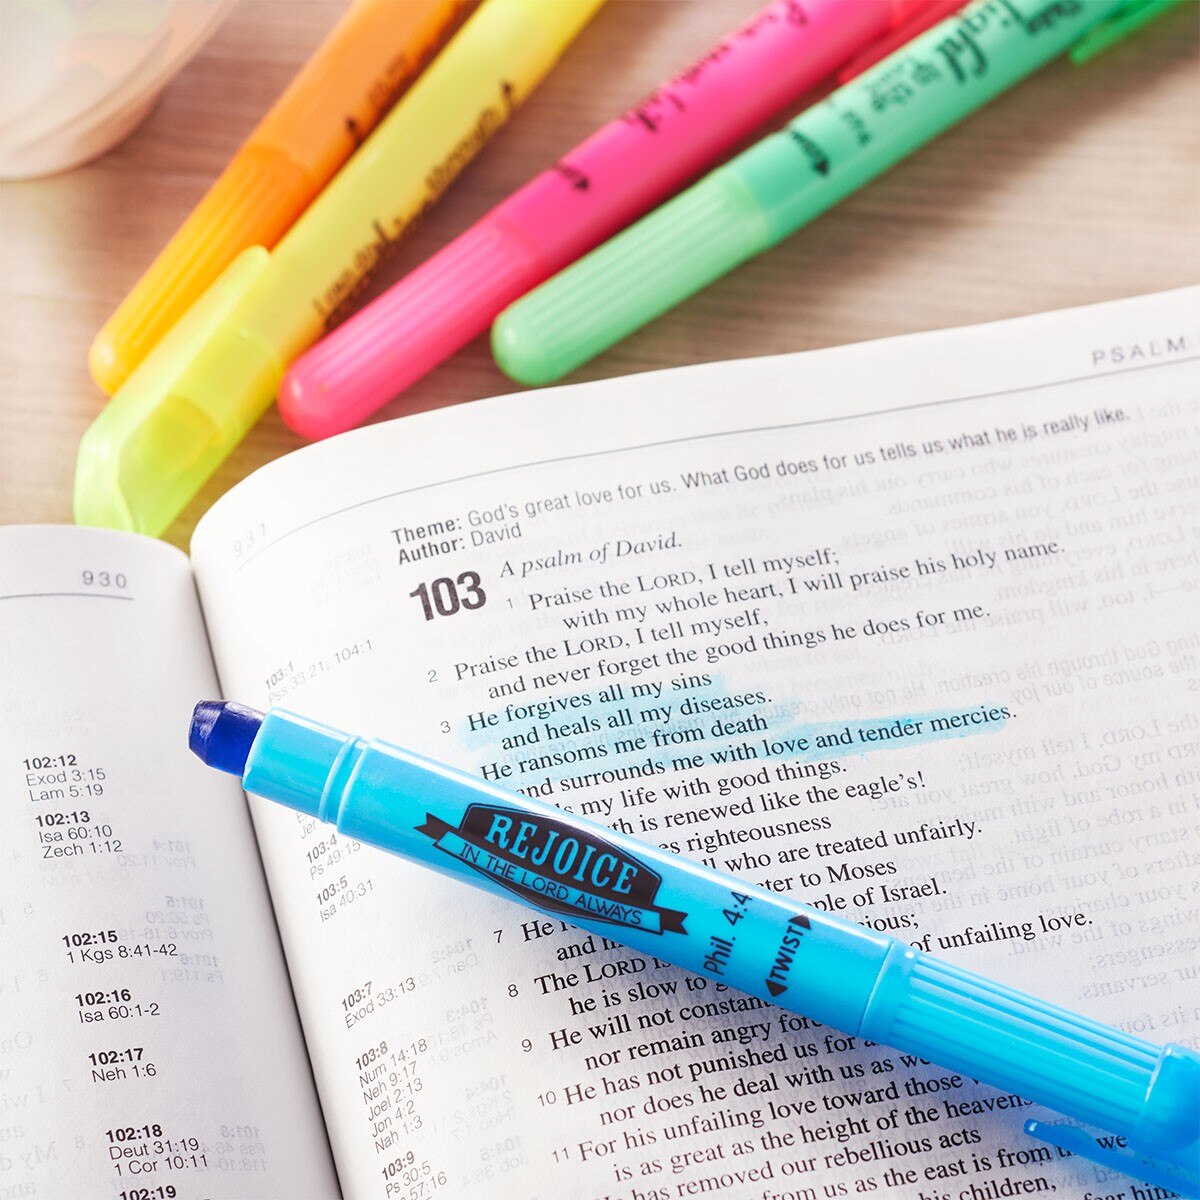 PSALM
931
Theme: God's great love for us. What God does for us tells us what he is really like.
Author: David
103
A psalm of David.
1 Praise the LORD, I tell myself;
with my whole heart, I will praise his holy name.
2 Praise the LORD, I tell myself,
and never forget the good things he does for me.
3 He forgives all my sins
and heals all my diseases.
He ransoms me from death
and surrounds me with love and tender mercies.
my life with good things.
is renewed like the eagle's!
righteousness
who are treated unfairly.
to Moses
of Israel.
7 He
and
of unfailing love.
8 The LORD is
he is slow to
9 He will not
nor remain angry
10 He has not punished us for
nor does he deal with us as
11 For his unfailing love toward those
is as great as the height of the heavens
has removed our rebellious acts
from us as the east is from
we
his children,
him
103:1
Pss 33:21; 104:1
103:4
Ps 49:15
103:5
Isa 40:31
103:7
Exod 33:13
103:8
Num 14:18
Neh 9:17
Joel 2:13
Jon 4:2
Nah 1:3
103:9
Ps 30:5
57:16
930
102:12
Exod 3:15
Lam 5:19
102:13
Isa 60:10
Zech 1:12
102:15
1 Kgs 8:41-42
102:16
Isa 60:1-2
102:17
Neh 1:6
102:18
Deut 31:19
1 Cor 10:11
102:19
REJOICE
IN THE LORD ALWAYS
Phil. 4:4
TWIST